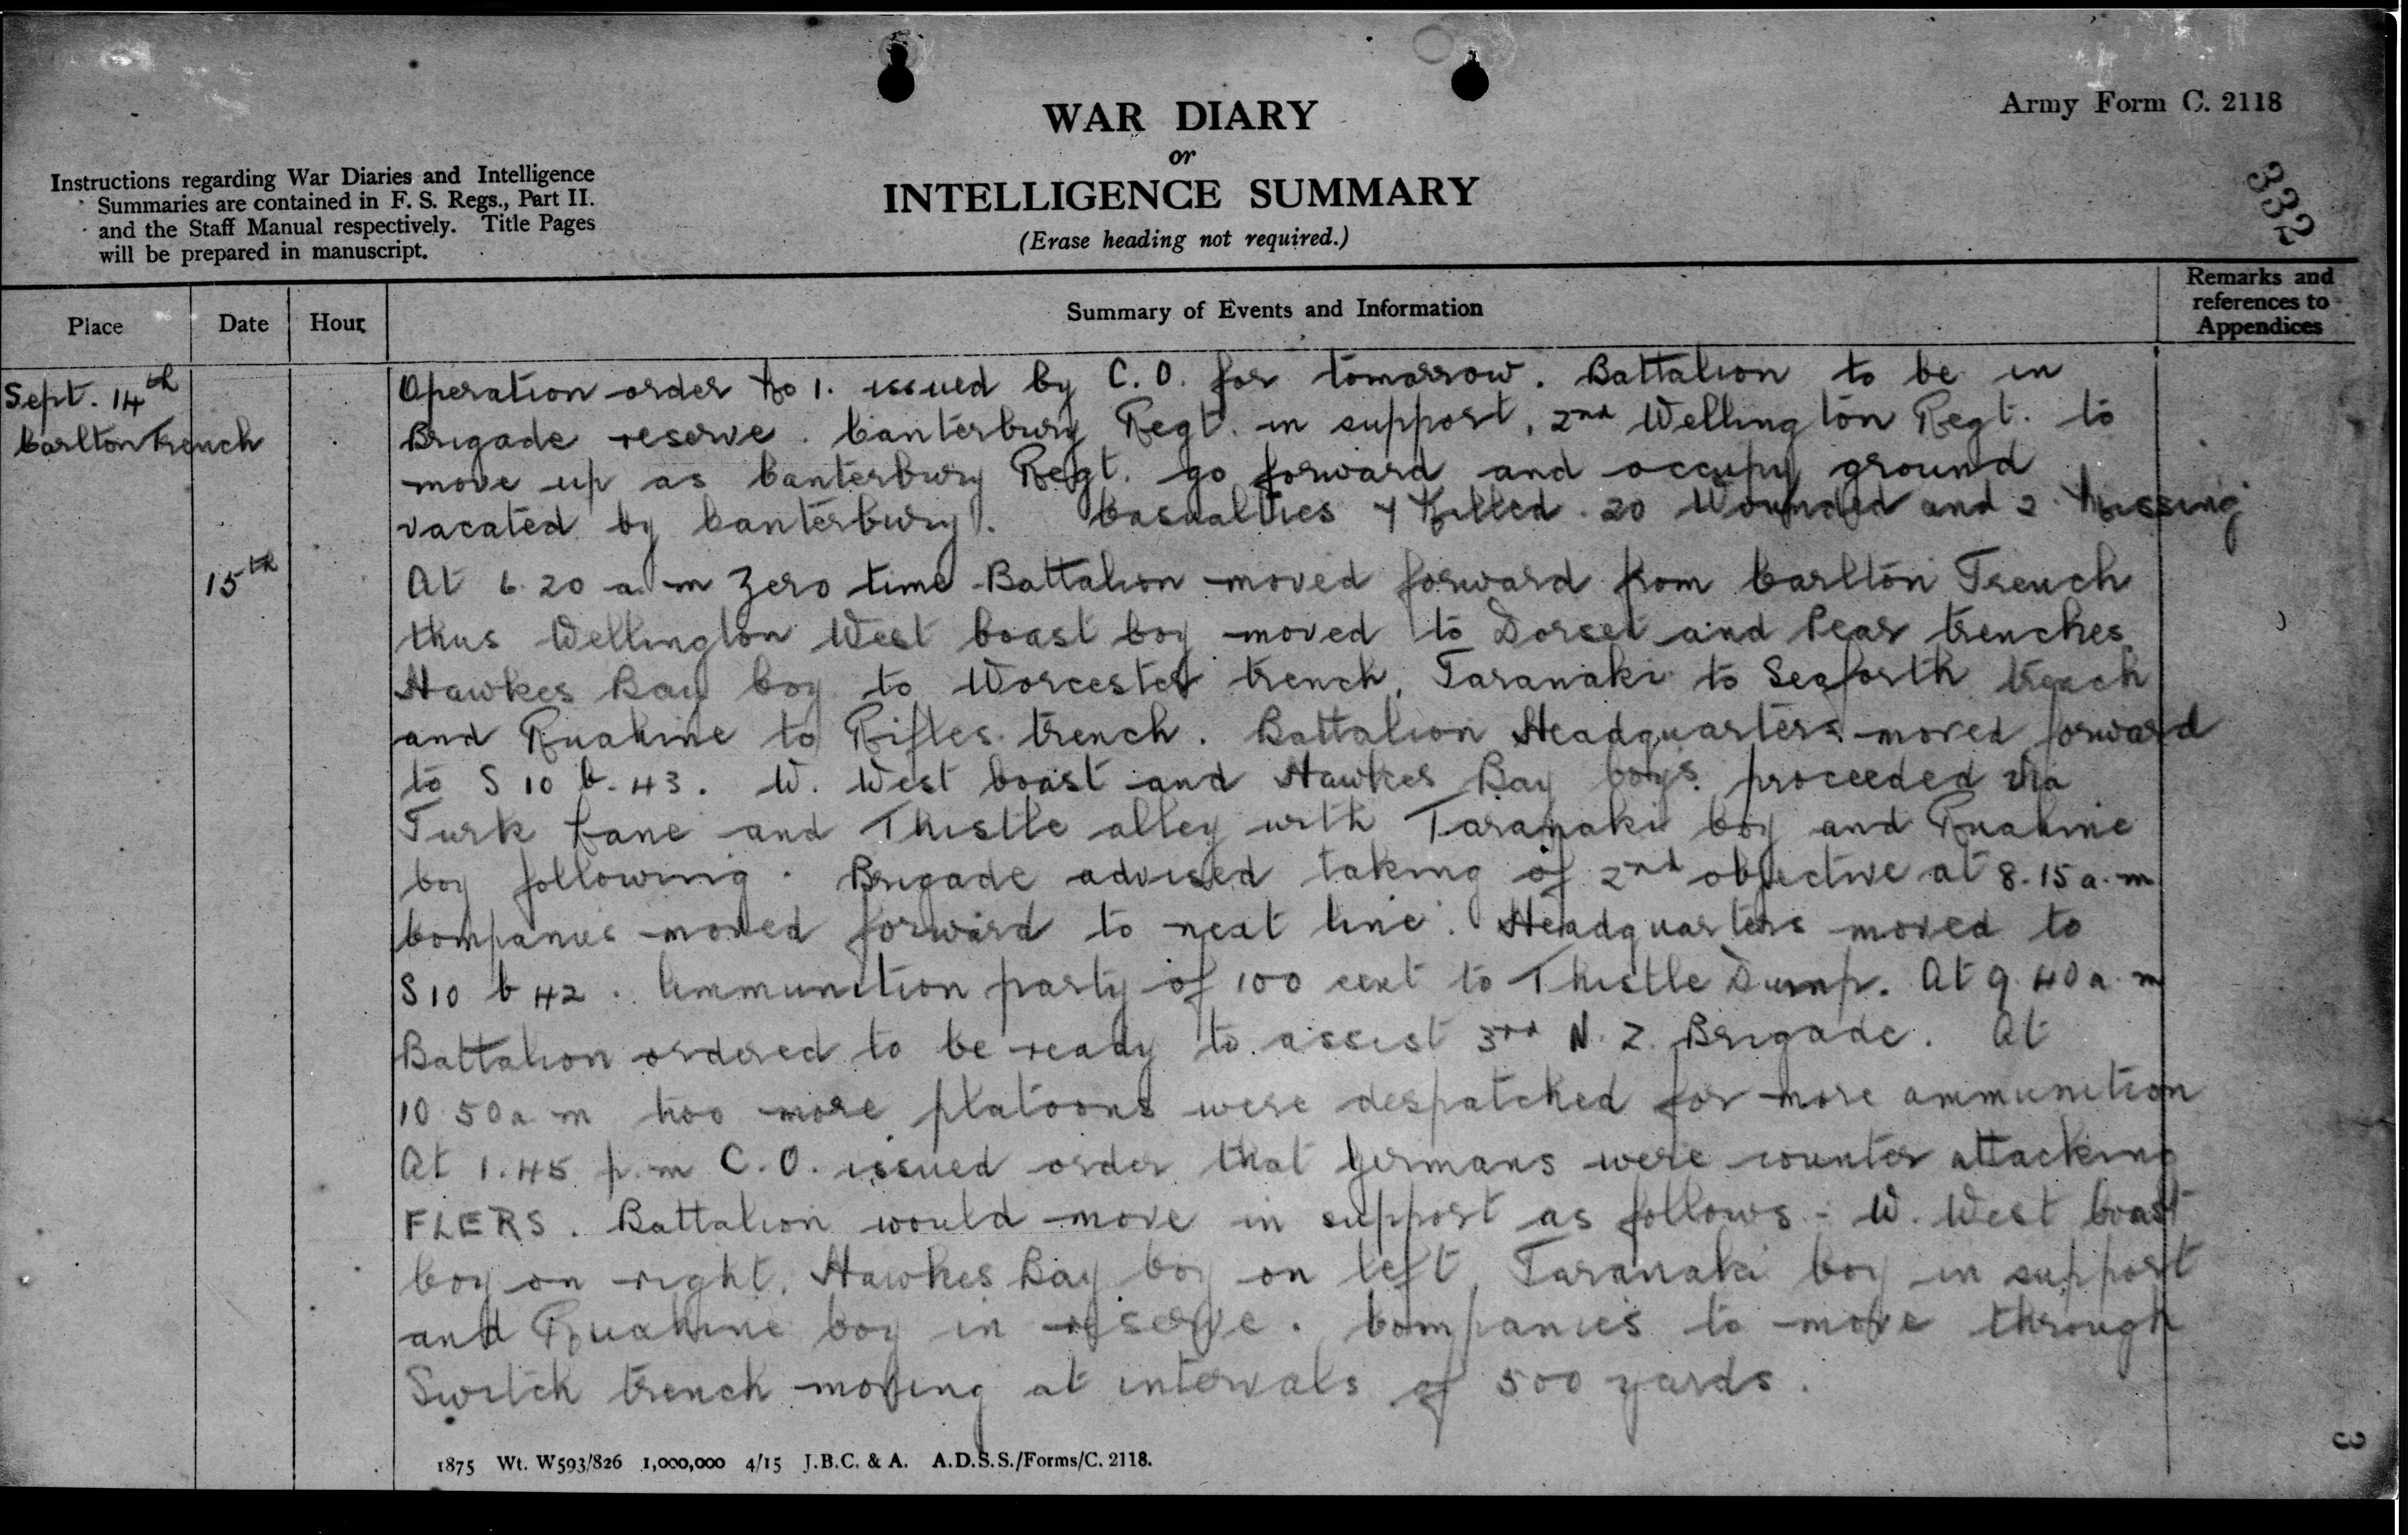 Army Form C. 2118
WAR DIARY
or
INTELLIGENCE SUMMARY
(Erase heading not required.)
Instructions regarding War Diaries and Intelligence
Summaries are contained in F. S. Regs., Part II.
and the Staff Manual respectively. Title Pages
will be prepared in manuscript.
332
Place Date Hour Summary of Events and Information Remarks and references to Appendices
Sept. 14th
Carlton Trench
Operation order No 1. issued by C.O. for tomorrow. Battalion to be in
Brigade reserve. Canterbury Regt. in support, 2nd Wellington Regt. to
move up as Canterbury Regt. go forward and occupy ground
vacated by Canterbury. Casualties 4 Killed. 20 Wounded and 2 Missing
15th
At 6.20 a.m Zero time Battalion moved forward from Carlton Trench
thus Wellington West Coast Coy moved to Dorset and Pear trenches.
Hawkes Bay Coy to Worcester trench, Taranaki to Seaforth trench
and Ruahine to Rifles trench. Battalion Headquarters moved forward
to S 10 b. 43. W. West Coast and Hawkes Bay Coys. proceeded via
Turk Lane and Thistle alley with Taranaki Coy and Ruahine
Coy following. Brigade advised taking of 2nd objective at 8.15 a.m
Companies moved forward to next line. Headquarters moved to
S 10 b 42. Ammunition party of 100 sent to Thistle Dump. At 9.40 a.m
Battalion ordered to be ready to assist 3rd N.Z. Brigade. At
10 50 a m two more platoons were despatched for more ammunition
At 1.45 p.m C.O. issued order that Germans were counter attacking
FLERS. Battalion would move in support as follows:- W. West Coast
Coy on right, Hawkes Bay Coy on left, Taranaki Coy in support
and Ruahine Coy in reserve. Companies to move through
Switch trench moving at intervals of 500 yards.
1875 Wt. W593/826 1,000,000 4/15 J.B.C. & A. A.D.S.S./Forms/C. 2118.
3